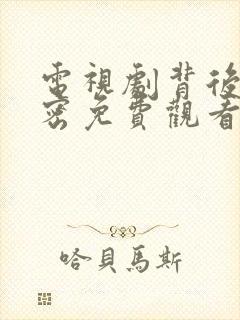 電視劇背後
密免費觀看
哈貝馬斯